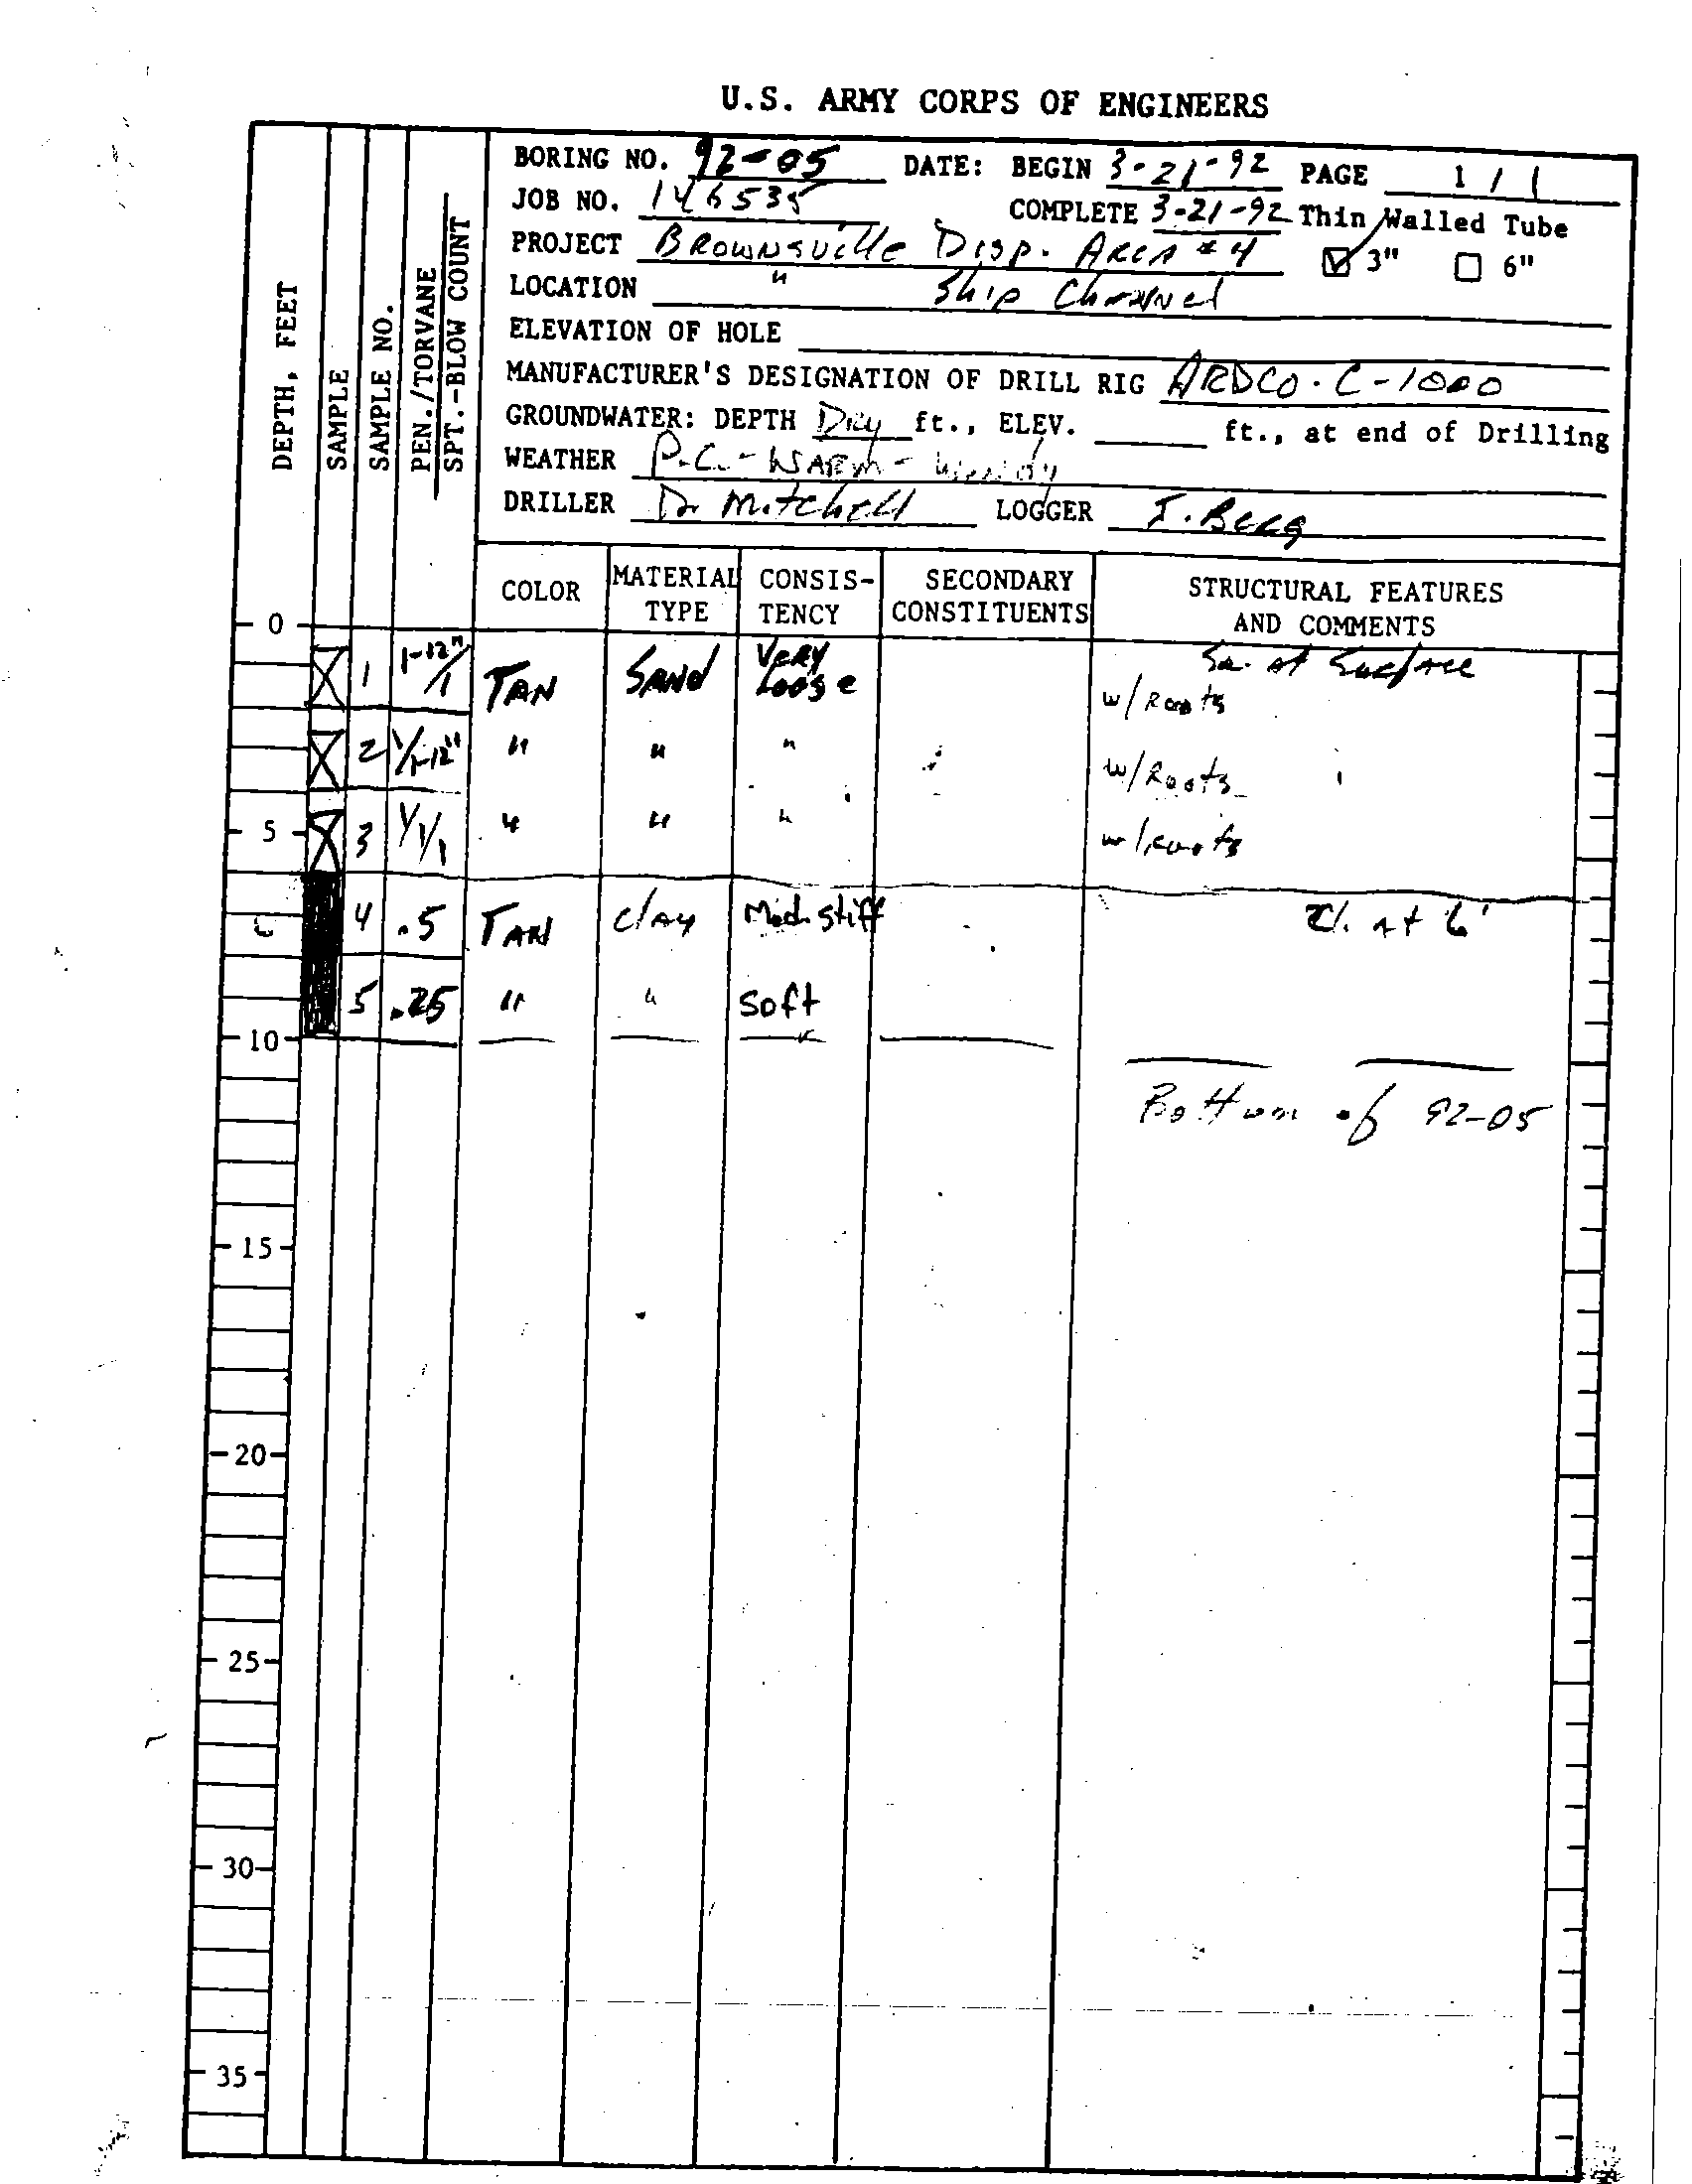 U.S. ARMY CORPS OF ENGINEERS
BORING NO. 92-05 DATE: BEGIN 3-21-92 PAGE 1 / 1
JOB NO. 146535 COMPLETE 3-21-92 Thin Walled Tube
PROJECT BROWNSVILLE DISP. AREA #4 3" 6"
LOCATION " Ship Channel
ELEVATION OF HOLE
MANUFACTURER'S DESIGNATION OF DRILL RIG ARDCO. C-1000
GROUNDWATER: DEPTH Dry ft., ELEV. ft., at end of Drilling
WEATHER P.C. - WARM - Windy
DRILLER D. Mitchell LOGGER J. Berg
DEPTH, FEET
SAMPLE
SAMPLE NO.
PEN./TORVANE
SPT.-BLOW COUNT
COLOR MATERIAL TYPE CONSIS-TENCY SECONDARY CONSTITUENTS STRUCTURAL FEATURES AND COMMENTS
0
Sa. at Surface
1 1-12"/1 TAN SAND VERY Loose w/ Roots
2 1/1-12" " " " w/ Roots
5 3 1/1/1 " " " w/ roots
4 .5 TAN clay Med. stiff Cl. at 6'
5 .25 " " soft
10
Bottom of 92-05
15
20
25
30
35